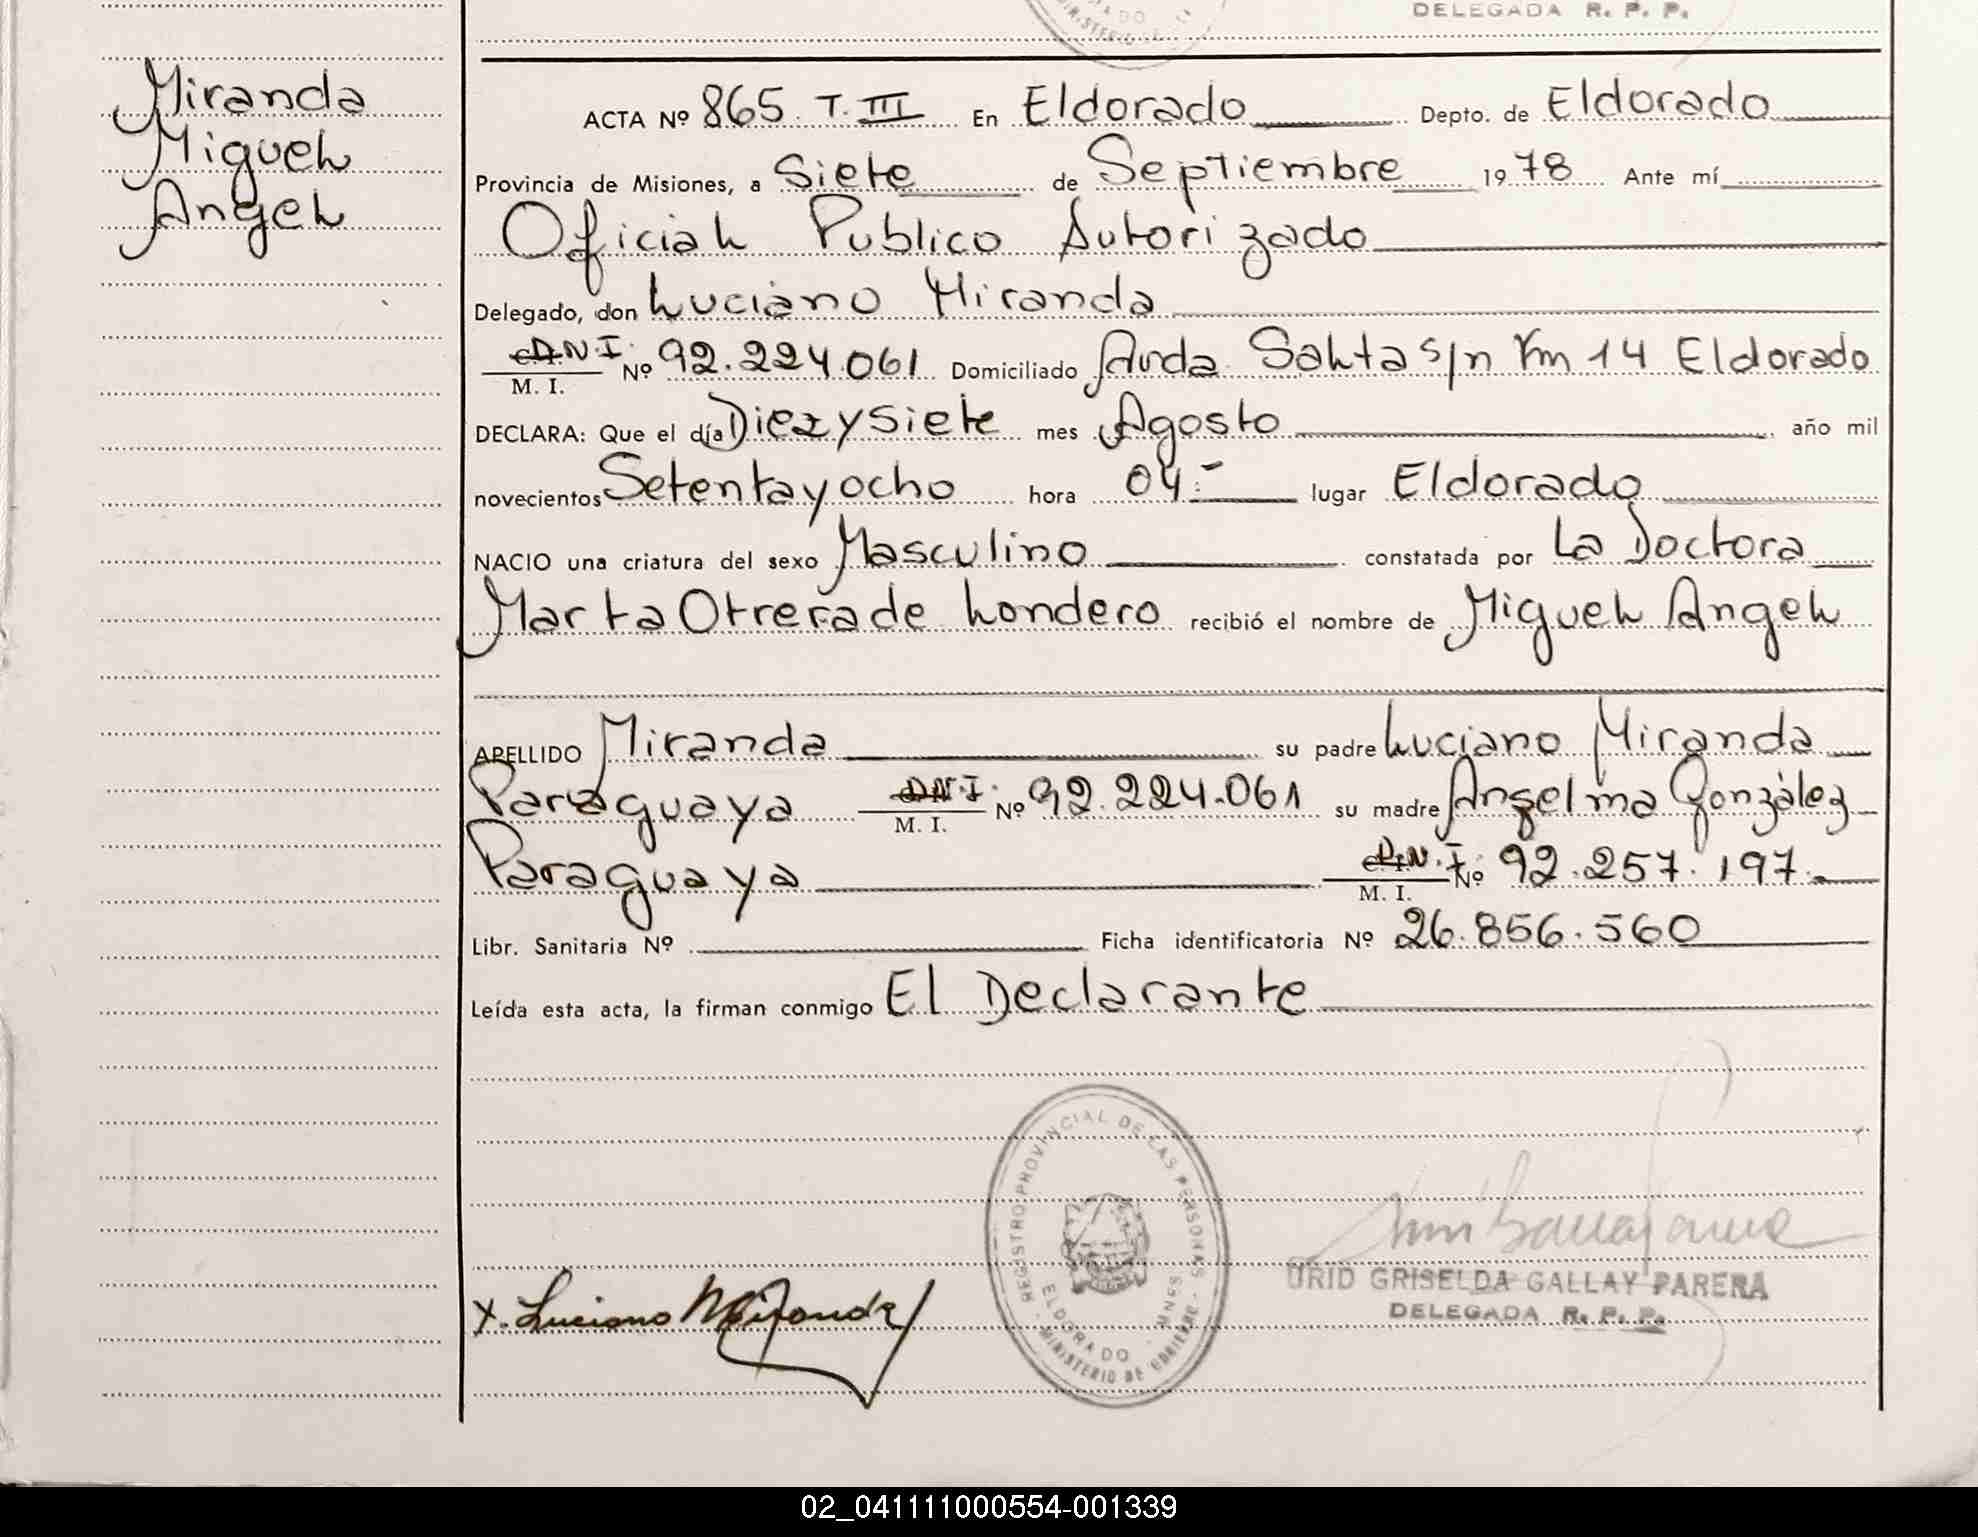 DELEGADA R. P. P.
Miranda
Miguel
Angel
ACTA Nº 865. T. III En Eldorado Depto. de Eldorado
Provincia de Misiones, a Siete de Septiembre 1978 Ante mí
Oficial Publico Autorizado
Delegado, don Luciano Miranda
D.N.I. M. I. Nº 92.224.061 Domiciliado Avda Salta s/n Km 14 Eldorado
DECLARA: Que el día Diezysiete mes Agosto año mil
novecientos Setentayocho hora 04:- lugar Eldorado
NACIO una criatura del sexo Masculino constatada por La Doctora
Marta Otrera de Londero recibió el nombre de Miguel Angel
APELLIDO Miranda su padre Luciano Miranda
Paraguaya D.N.I. M. I. Nº 92.224.061 su madre Anselma González
Paraguaya D.N.I. M. I. Nº 92.257.197.
Libr. Sanitaria Nº Ficha identificatoria Nº 26.856.560
Leída esta acta, la firman conmigo El Declarante
REGISTRO PROVINCIAL DE LAS PERSONAS - MINISTERIO DE GOBIERNO
ELDORADO - MNES
X. Luciano Miranda
URID GRISELDA GALLAY PARERA
DELEGADA R. P. P.
02_041111000554-001339